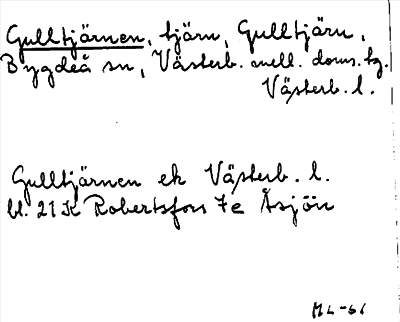 Gulltjärnen, tjärn, Gulltjärn,
Bygdeå sn, Västerb. mell. doms. tg.
Västerb. l.
Gulltjärnen ek Västerb. l.
bl. 21 K Robertsfors 7e Åsjön
ML-61